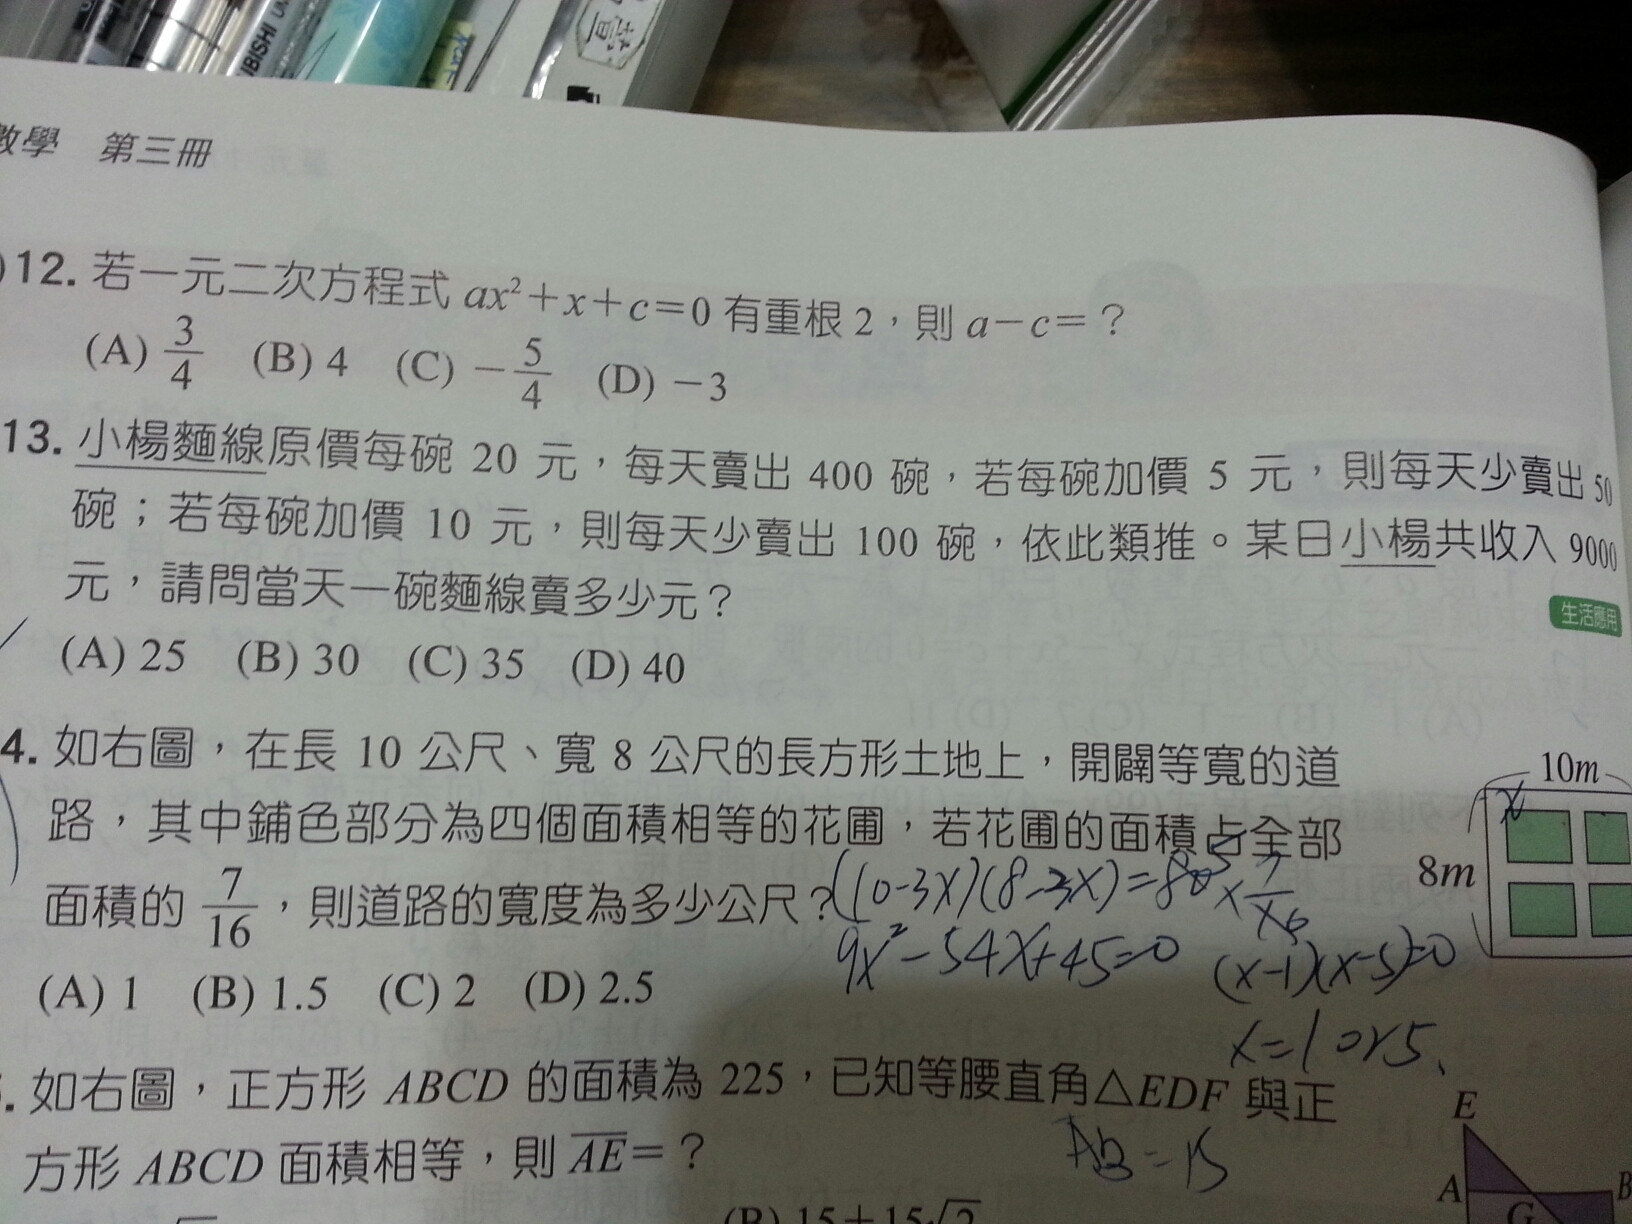 數學 第三冊
)12. 若一元二次方程式 ax²+x+c=0 有重根 2,則 a-c=?
(A) 3/4 (B) 4 (C) -5/4 (D) -3
13. 小楊麵線原價每碗 20 元,每天賣出 400 碗,若每碗加價 5 元,則每天少賣出 50
碗;若每碗加價 10 元,則每天少賣出 100 碗,依此類推。某日小楊共收入 9000
元,請問當天一碗麵線賣多少元?
生活應用
(A) 25 (B) 30 (C) 35 (D) 40
4. 如右圖,在長 10 公尺、寬 8 公尺的長方形土地上,開闢等寬的道
路,其中鋪色部分為四個面積相等的花圃,若花圃的面積占全部
面積的 7/16,則道路的寬度為多少公尺?
(10-3x)(8-3x)=80×7/16
9x²-54x+45=0
(x-1)(x-5)=0
x=1 or 5
10m
x
8m
(A) 1 (B) 1.5 (C) 2 (D) 2.5
. 如右圖,正方形 ABCD 的面積為 225,已知等腰直角△EDF 與正
方形 ABCD 面積相等,則 AE=?
AB=15
E
A
B
G
(B) 15+15√2